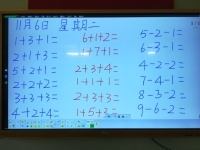 11月6日 星期二
1+3+1= 6+1+2= 5-2-1=
2+1+3= 1+7+1= 6-3-1=
5+2+1= 2+3+4= 4-2-2=
2+2+2= 1+1+1= 7-4-1=
3+3+3= 2+3+3= 8-3-2=
4+2+4= 1+5+3= 9-6-2=